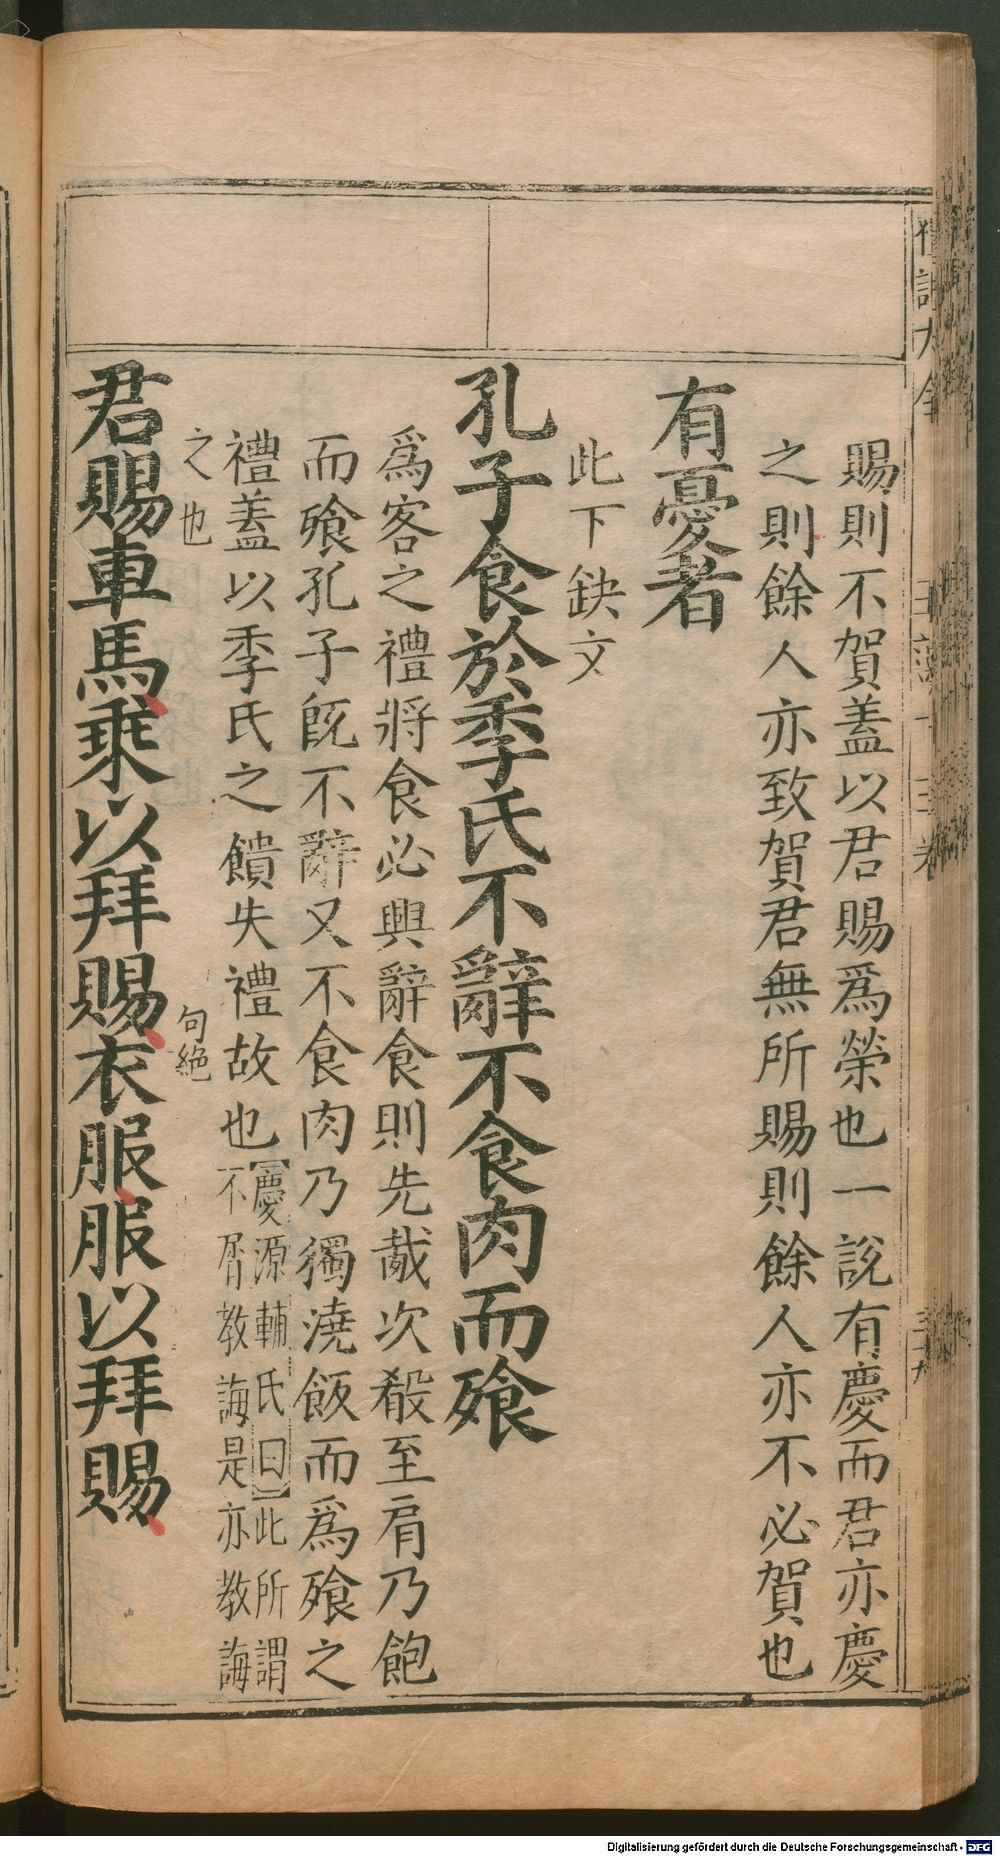 賜則不賀蓋以君賜爲榮也一說有慶而君亦慶
之則餘人亦致賀君無所賜則餘人亦不必賀也
有憂者
此下缺文
孔子食於季氏不辭不食肉而飱
爲客之禮將食必興辭食則先胾次殽至肩乃飽
而飱孔子旣不辭又不食肉乃獨澆飯而爲飱之
禮蓋以季氏之饋失禮故也
慶源輔氏曰此所謂
不屑教誨是亦教誨
之也
句絶
君賜車馬乘以拜賜衣服服以拜賜
Digitalisierung gefördert durch die Deutsche Forschungsgemeinschaft - DFG